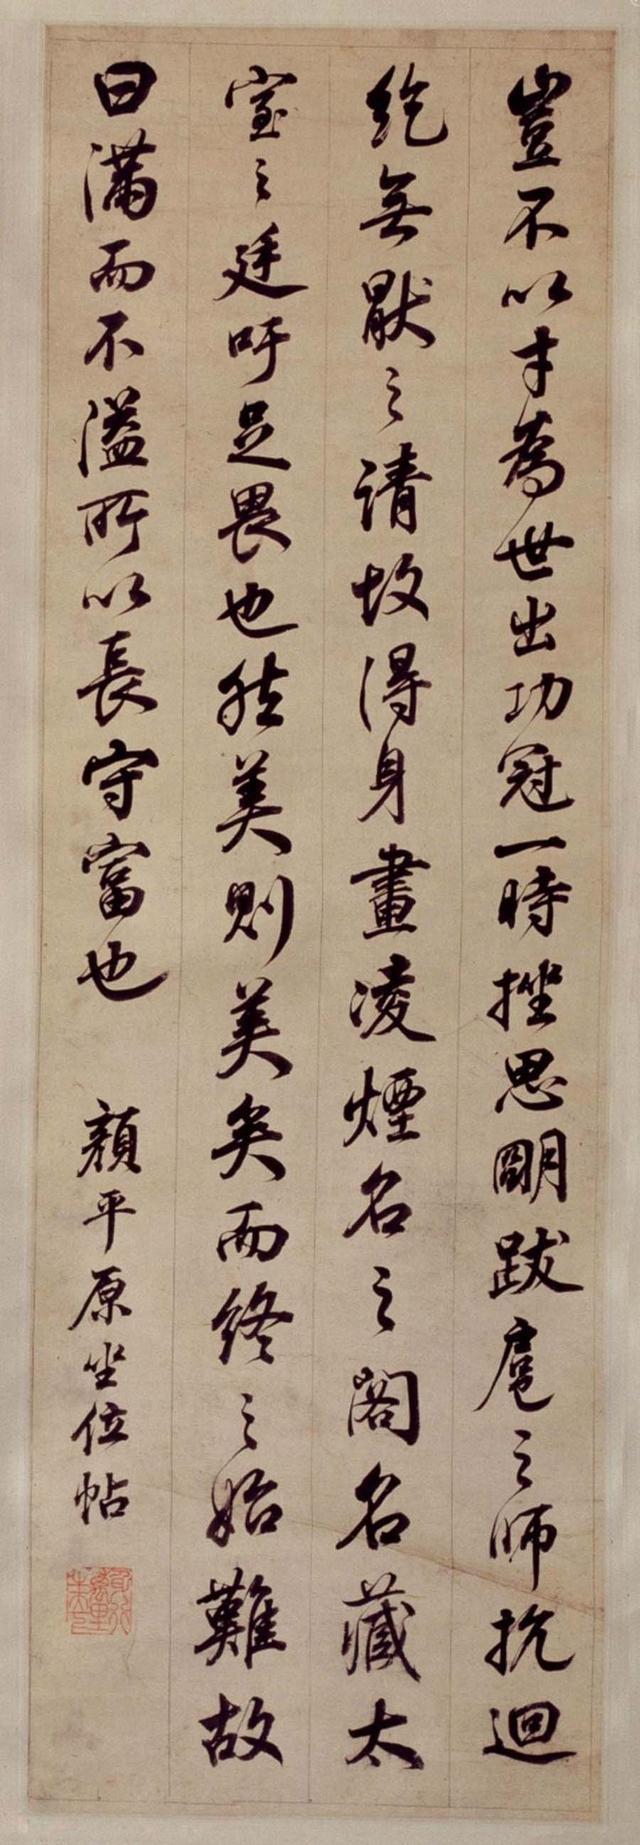 豈不以才為世出功冠一時挫思明跋扈之師抗迴
紇無厭之請故得身畫凌煙名之閣名藏太
室之廷吁足畏也然美則美矣而終之始難故
曰滿而不溢所以長守富也
顏平原坐位帖